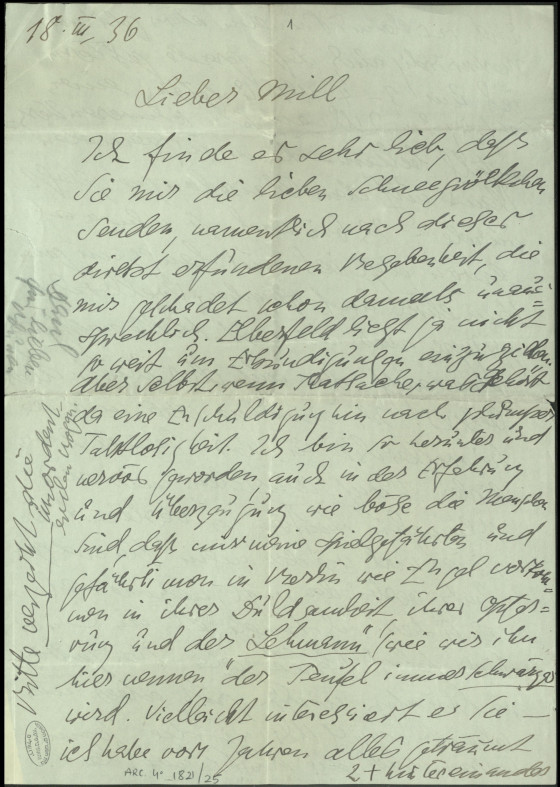 18. III. 36
1
Lieber Mill
Ich finde es sehr lieb, daß
Sie mir die lieben Schneeglöckchen
senden, namentlich nach dieser
direkt erfundenen Begebenheit, die
mir geschadet schon damals unaus=
sprechlich. Elberfeld liegt ja nicht
so weit um Erkündigungen einzuziehen.
Aber selbst, wenn Tatsache, was gehört
da eine Entschuldigung hin nach
Taktlosigkeit. Ich bin so herunter und
nervös geworden auch in der Erfahrung
und Überzeugung wie böse die Menschen
sind, daß mir meine Spielgefährten und
Gefährtinnen in Berlin wie Engel vorkom=
men in ihrer Duldsamkeit, ihrer Opfe=
rung und der "Lehmann" (wie wir ihn
hier nennen "der Teufel immer schwärzer
wird. Vielleicht interessiert es Sie —
ich habe vor Jahren alles geträumt
2 + hintereinander
Bitte verzeiht die
ARC. 4° 1821/25